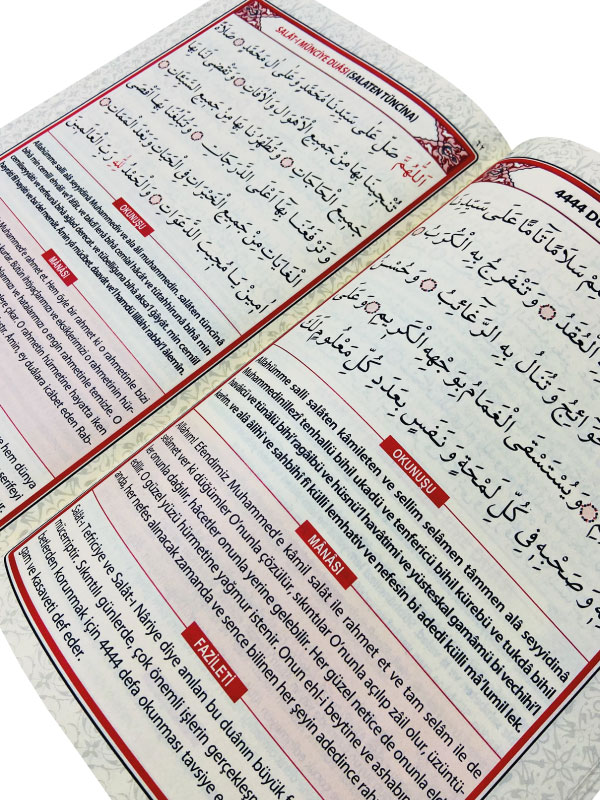 SALÂT-I MÜNCİYE DUÂSI (SALATEN TÜNCİNA)
اَللّٰهُمَّ صَلِّ عَلٰى سَيِّدِنَا مُحَمَّدٍ وَعَلٰى اٰلِ مُحَمَّدٍ صَلَاةً
تُنْجِينَا بِهَا مِنْ جَمِيعِ الْاَهْوَالِ وَالْاٰفَاتِ وَتَقْضِى لَنَا بِهَا
جَمِيعَ الْحَاجَاتِ وَتُطَهِّرُنَا بِهَا مِنْ جَمِيعِ السَّيِّئَاتِ
وَتَرْفَعُنَا بِهَا اَعْلَى الدَّرَجَاتِ وَتُبَلِّغُنَا بِهَا اَقْصَى
الْغَايَاتِ مِنْ جَمِيعِ الْخَيْرَاتِ فِى الْحَيَاتِ وَبَعْدَ الْمَمَاتِ
اٰمِينَ يَا مُجِيبَ الدَّعَوَاتِ وَالْحَمْدُ لِلّٰهِ رَبِّ الْعَالَمِينَ
OKUNUŞU
Allahümme salli alâ seyyidinâ Muhammediv ve ala âli muhammedin. salâten tüncînâ
bihâ min cemîil ehvâli vel âfât. ve takdî lenâ bihâ cemîal hâcât ve tütahhirunâ bihâ min
cemîisseyyiât ve terfeunâ bihâ a'led deracât. ve tübelliğunâ bihâ aksa'l ğâyât. min cemîil
hayrâti fil hayâti ve ba'del memât. Amin yâ mücibed daavât ve'l hamdü lillâhi rabbi'l alemin.
MÂNÂSI
Muhammed'e rahmet et. Hem öyle bir rahmet ki o rahmetinle bizi
Bütün ihtiyaçlarımızı ve eksiklerimizi o rahmetinin hür-
ve hatalarımızı o engin rahmetinle temizle. O
çıkar. O rahmetin hürmetine hayatta iken
Amin, ey duâlara icâbet eden Rab-
ve hem dünya
4444 DU
اَلْعُقَدُ وَتَنْفَرِجُ بِهِ الْكُرَبُ
وَتُنَالُ بِهِ الرَّغَائِبُ وَحُسْنُ
وَيُسْتَسْقَى الْغَمَامُ بِوَجْهِهِ الْكَرِيمِ وَعَلٰى
وَصَحْبِهِ فِى كُلِّ لَمْحَةٍ وَنَفَسٍ بِعَدَدِ كُلِّ مَعْلُومٍ لَكَ
OKUNUŞU
Allahümme salli salâten kâmileten ve sellim selâmen tâmmen alâ seyyidinâ
Muhammedinillezî tenhallü bihil ukadü ve tenfericü bihil kürebü ve tukdâ bihil
havâicü ve tünâlü bihi'r regâibü ve hüsnü'l havâtimi ve yüsteskal gamâmü bi vechihi'l
kerîm ve alâ âlihi ve sahbihi fî külli lemhativ ve nefesin bi adedi külli mâ'lumil lek.
MÂNÂSI
Allahım! Efendimiz Muhammed'e kâmil salât ile rahmet et ve tam selâm ile de
selâmet ver ki düğümler O'nunla çözülür, sıkıntılar O'nunla açılıp zâil olur, üzüntü-
ler onunla dağılır, hâcetler onunla yerine gelebilir. Her güzel netice de onunla el
edilir. O güzel yüzü hürmetine yağmur istenir. Onun ehl-i beytine ve ashabın
anda, her nefes alınacak zamanda ve sence bilinen her şeyin adedince rah
FAZİLETİ
Salât-ı Tefriciye ve Salât-ı Nâriye diye anılan bu duânın büyük f
mücerriptir. Sıkıntılı günlerde, çok önemli işlerin gerçekleşm
belerden korunmak için 4444 defa okunması tavsiye e
gam ve kasaveti def eder.